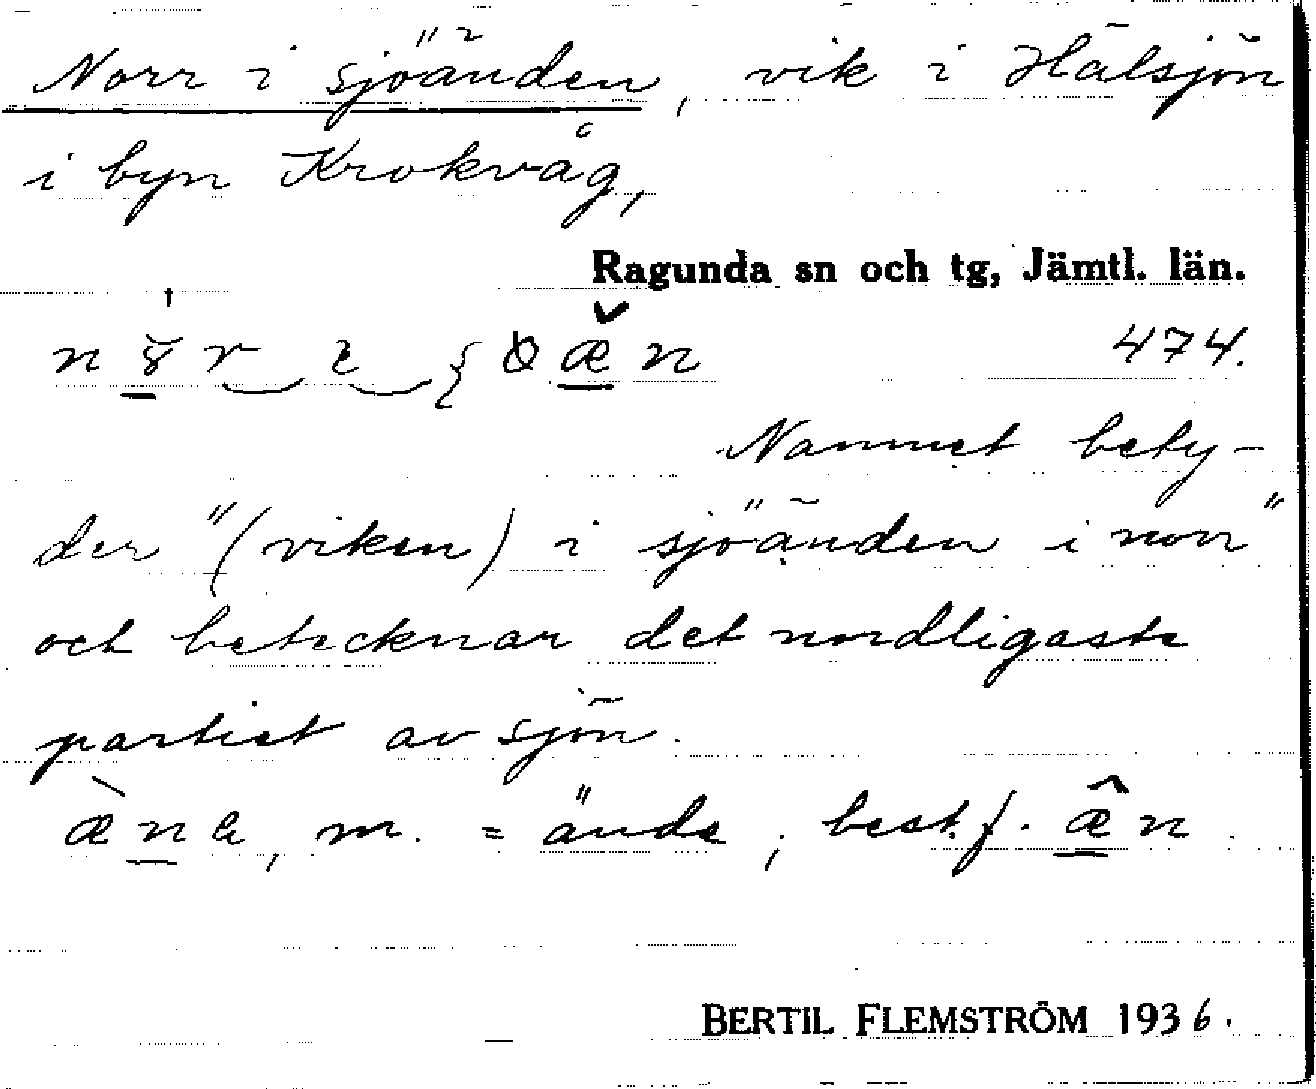 Norr i sjöänden, vik i Hälsjön
i byn Krokvåg,
Ragunda sn och tg, Jämtl. län.
474.
Namnet bety-
der "(viken) i sjöänden i norr"
och betecknar det nordligaste
partiet av sjön.
m. = ände; best. f. æ̂n.
BERTIL FLEMSTRÖM 1936.